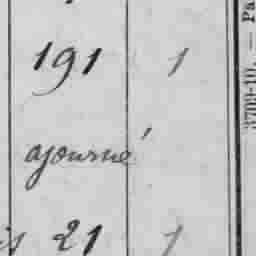 191 1
ajourné
is 21 1
3709-10. — Pa